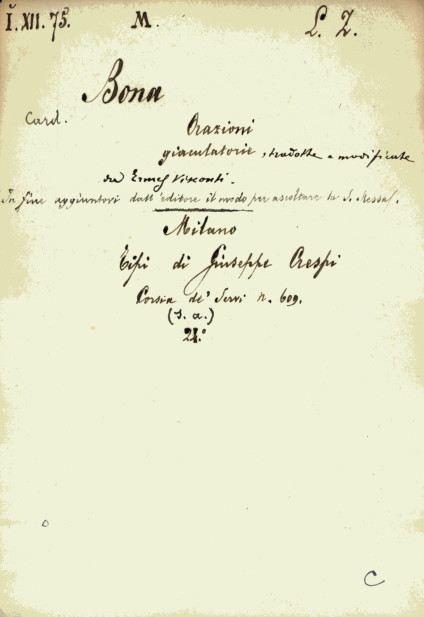 Ĭ. XII. 75. M. L. Z.
Bona
Card.
Orazioni
giaculatorie, tradotte e modificate
da Ermes Visconti.
In fine aggiuntovi dall'editore il modo per ascoltare la S. Messa.
Milano
Tipi di Giuseppe Crespi
Corsia de' Servi n. 609.
(s. a.)
24.°
C